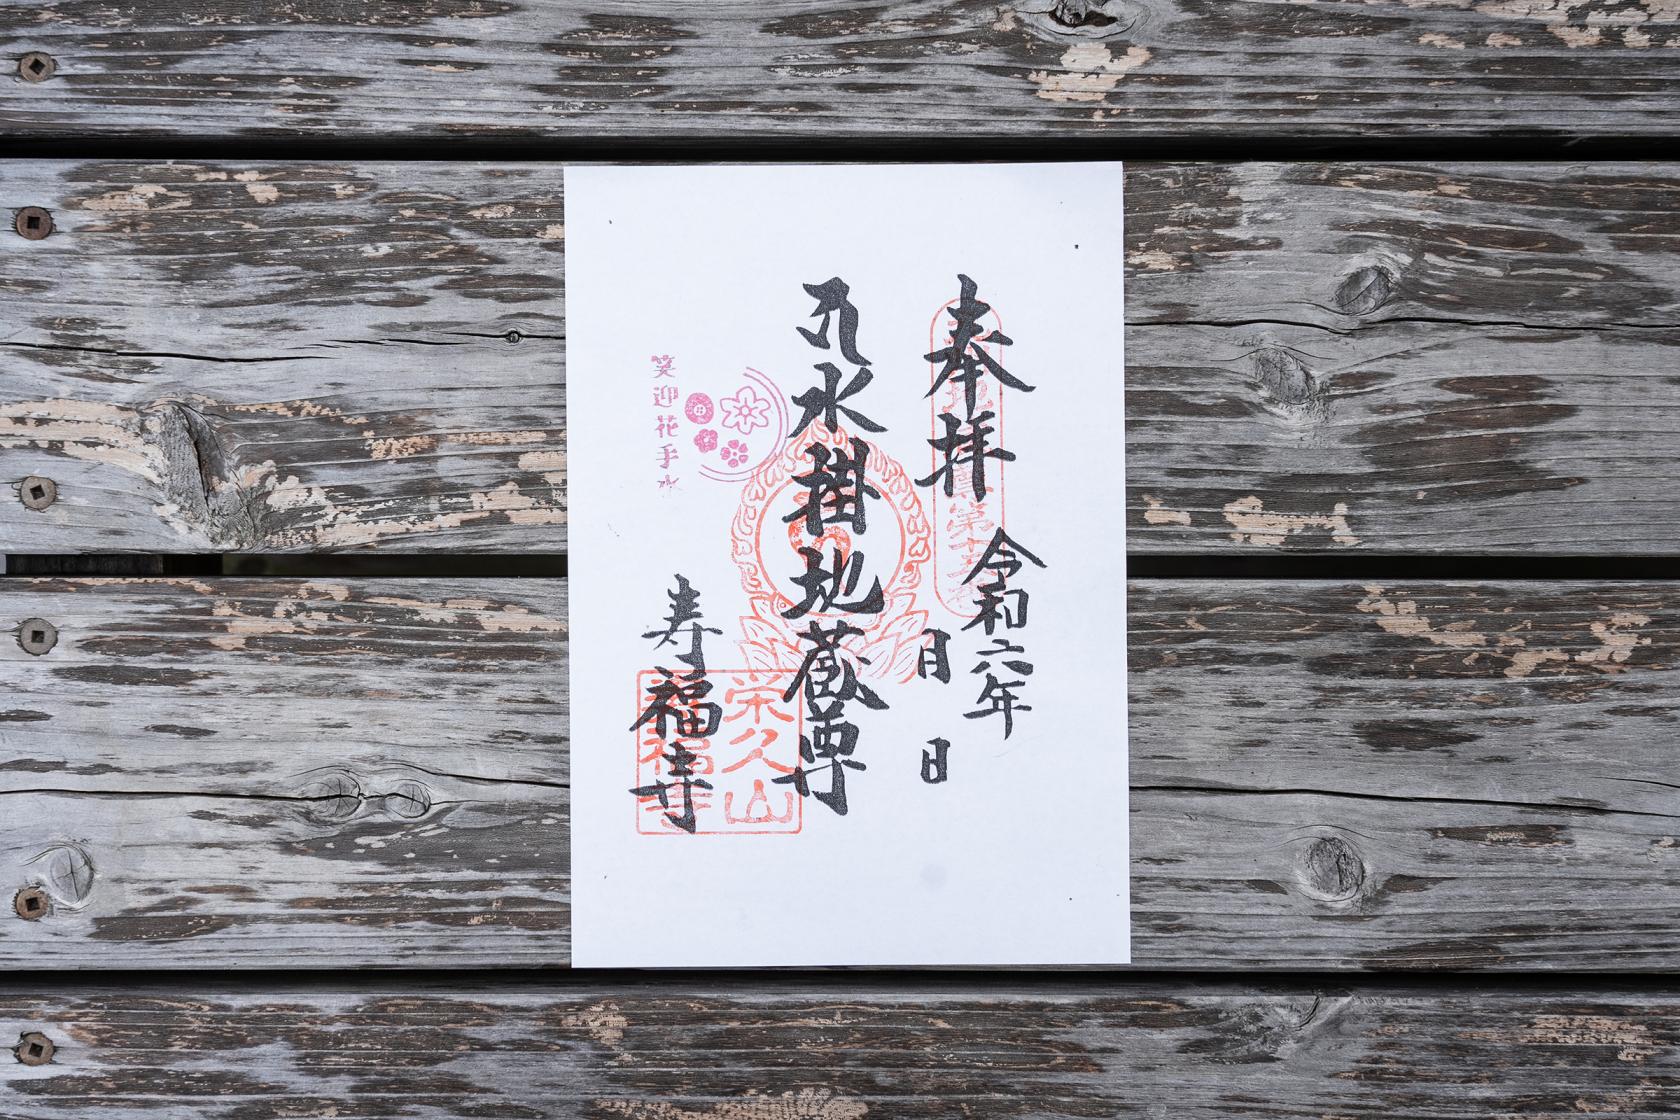 奉拝
令和六年
月
日
水掛地蔵尊
寿福寺
栄久山
笑迎花手水